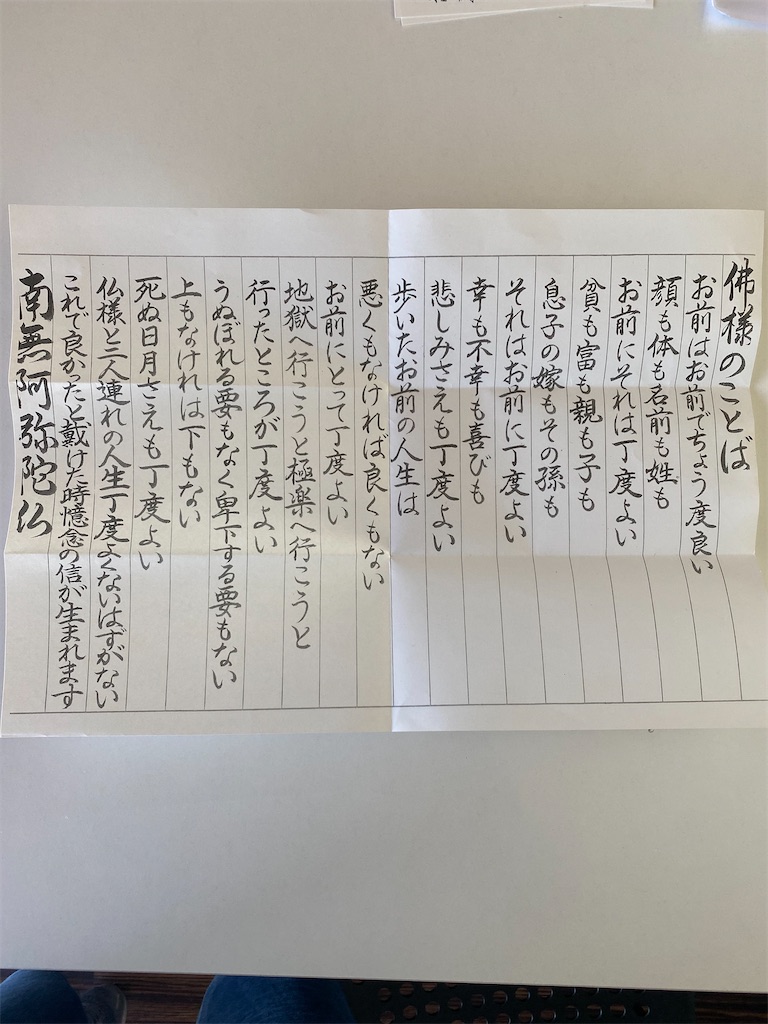 佛様のことば
お前はお前でちょう度良い
顔も体も名前も姓も
お前にそれは丁度よい
貧も富も親も子も
息子の嫁もその孫も
それはお前に丁度よい
幸も不幸も喜びも
悲しみさえも丁度よい
歩いたお前の人生は
悪くもなければ良くもない
お前にとって丁度よい
地獄へ行こうと極楽へ行こうと
行ったところが丁度よい
うぬぼれる要もなく卑下する要もない
上もなければ下もない
死ぬ日月さえも丁度よい
仏様と二人連れの人生丁度よくないはずがない
これで良かったと戴けた時憶念の信が生まれます
南無阿弥陀仏